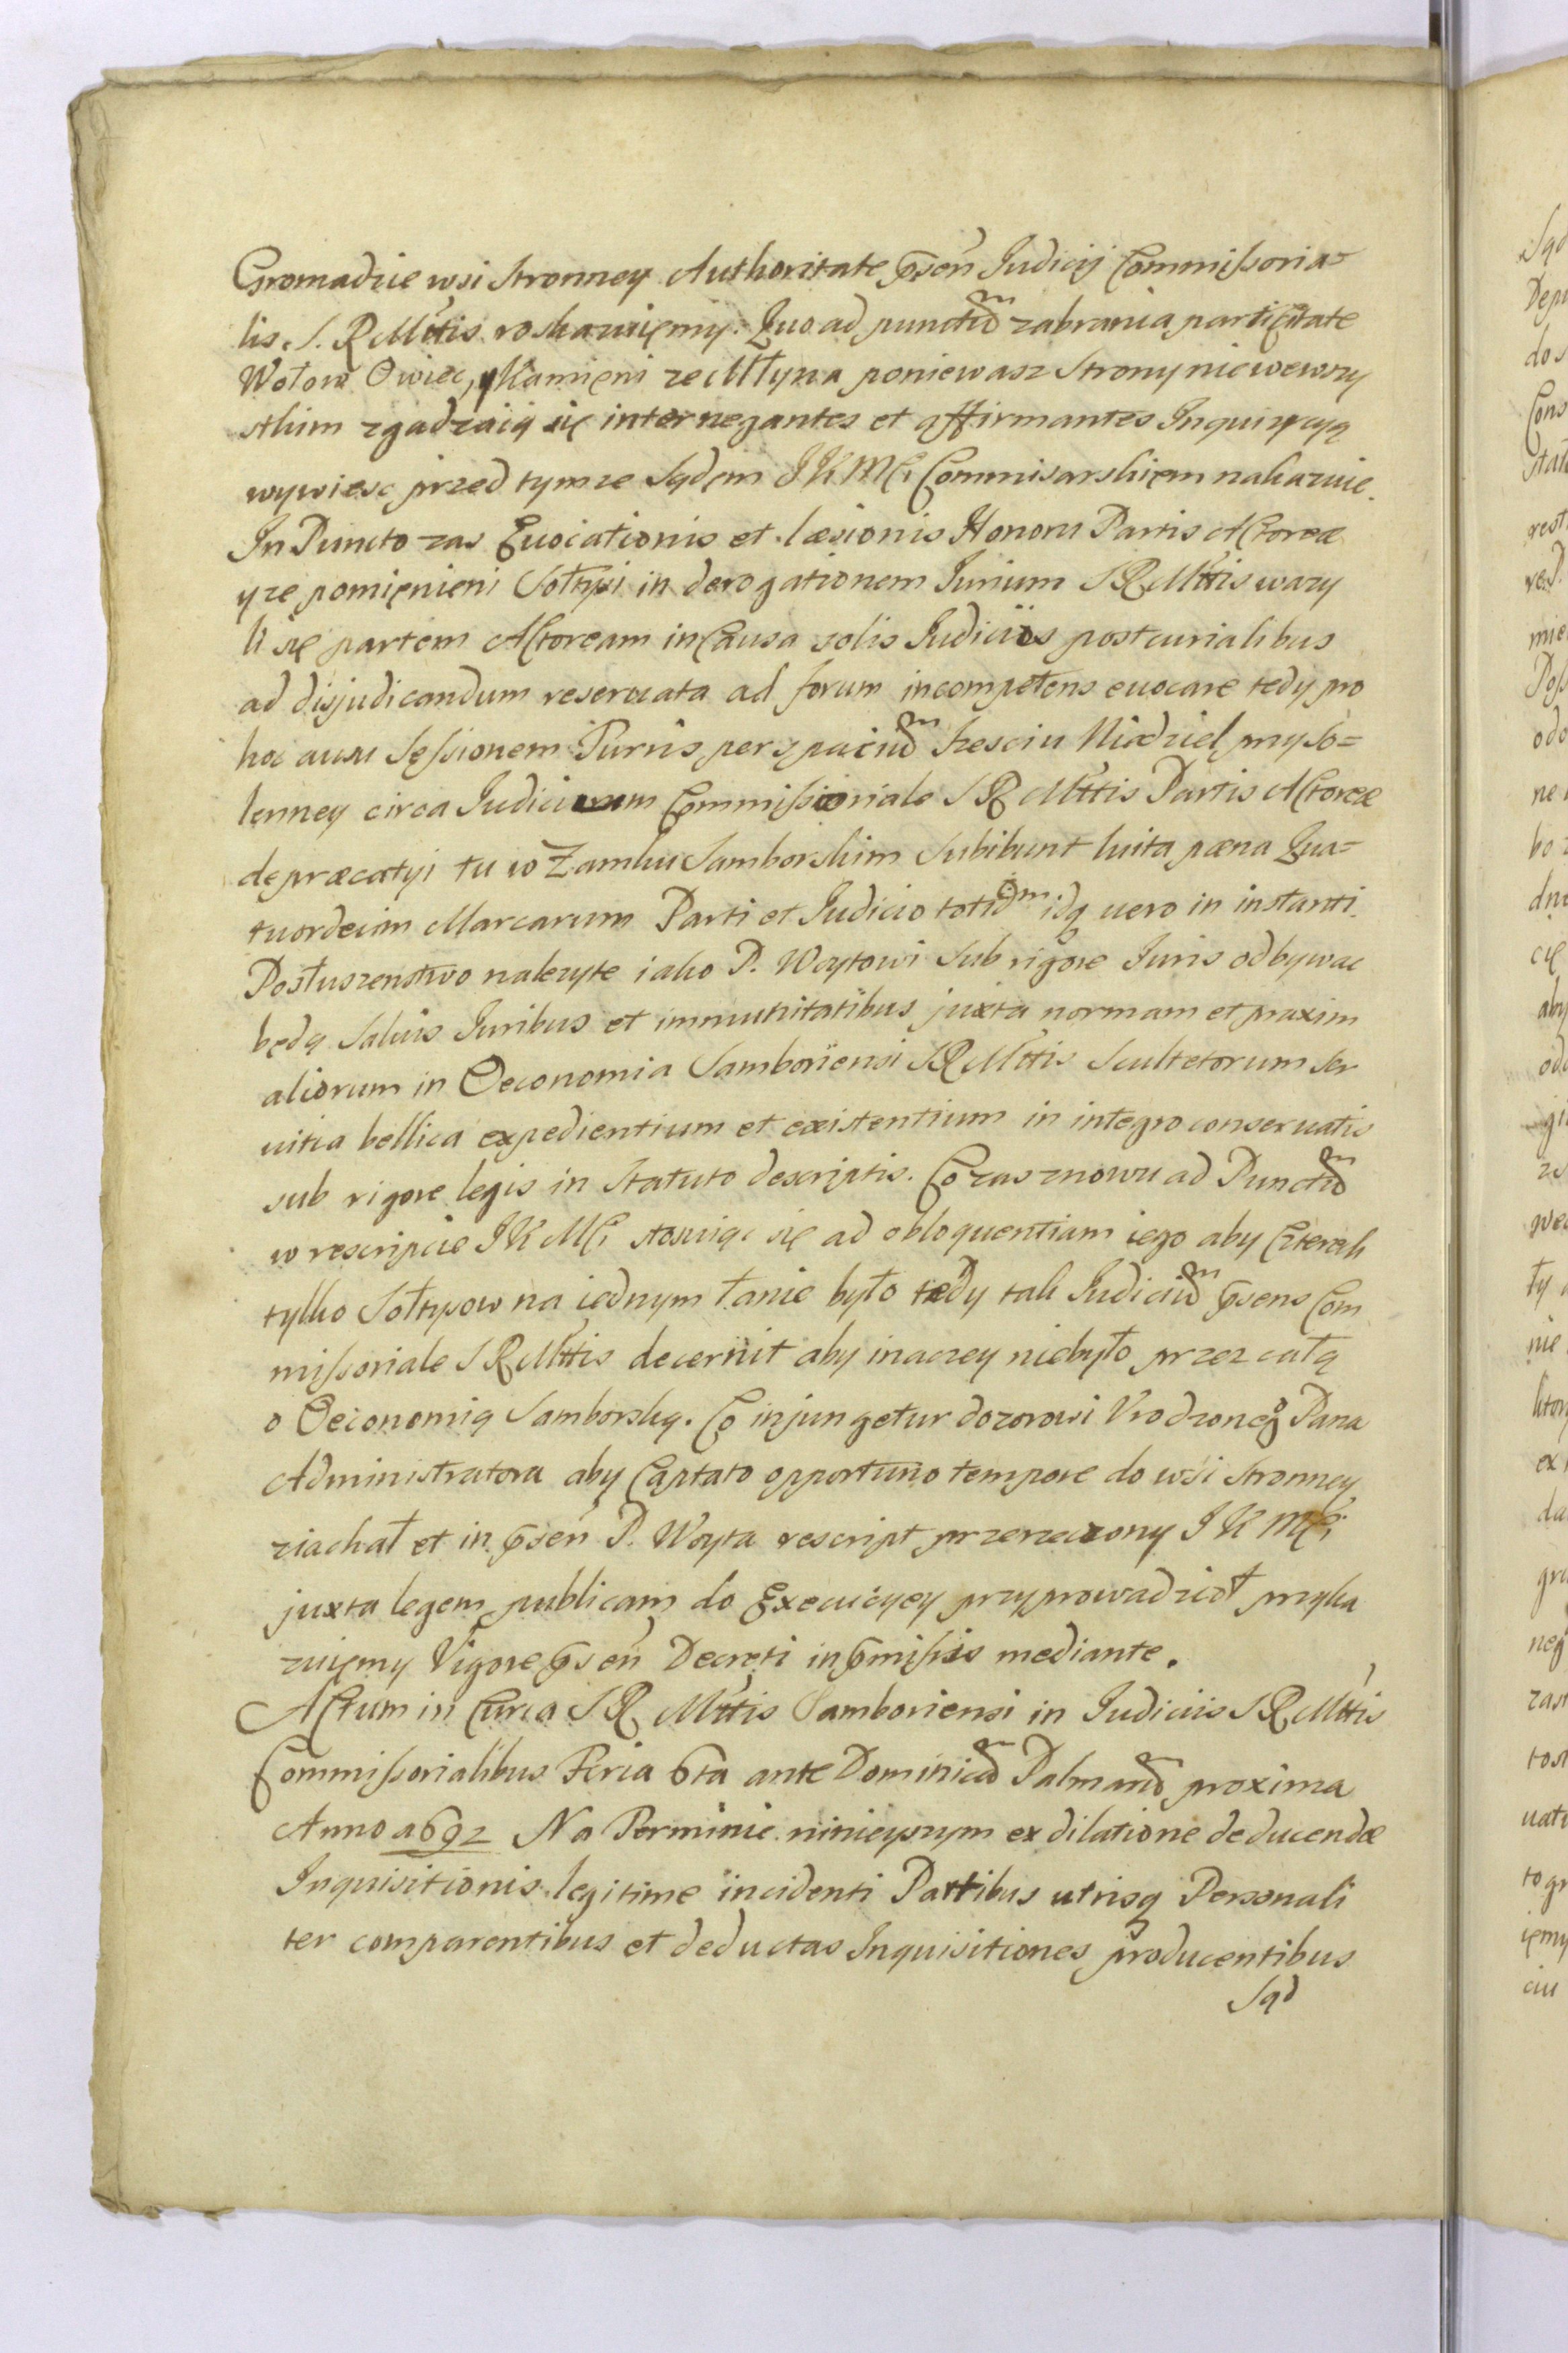 Gromadzie wsi Stronney Authoritate p̄sen Judicij Commissoria=
lis. S. R Mttis roskazuięmy. Quo ad punctum zabrania parti citate
Wołow Owiec, y Kamięni ze Młyna poniewasz Strony nie wewszy
stkim zgadzaią się inter negantes et affirmantes Inquizycyą
wywiesc przed tymze Sądęm JKMCi Commisarskięm nakazuie.
In Puncto zas Evocationis et læsionis Honoru Partis Actoreæ
yze pomięnieni Sołtysi in derogationem Jurium SRMttis wazy
li się partem Actoream in Causa solis Judiciis postcurialibus
ad disjudicandum reseruata ad forum incompetens euocare tedy pro
hoc ausu Sessionem Turris per spacium Szesciu Niedziel, my so=
lenney circa Judicium Commissoriale SR Mttis Partis Actoreæ
depræcatyi tu w Zamku Samborskim Subibunt luita pæna Qua=
tuordecim Marcarum Parti et Judicio totidem idq uero in instanti.
Posłuszenstwo nalezyte iako P. Woytowi Sub rigore Juris odbywac
będą Saluis Juribus et immunitatibus juxta normam et praxim
aliorum in Oeconomia Samboriensi SR Mttis Scultetorum ser
uitia bellica expedientium et existentium in integro conseruatis
sub rigore legis in Statuto descriptis. Co zas znowu ad Punctum
w rescripcie JKMCi stosuiąc się ad obloquentiam iego aby Czterech
tylko Sołtysow na iednym łanie było tedy tak Judicium p̄sens Com
missoriale SR Mttis decernit aby inaczey niebyło przez całą
o Oeconomią Samborską. Co injungetur dozorowi Vrodzonego Pana
Administratora aby Captato opportuno tempore do wsi Stronney
ziachał et in p̄sen P. Woyta rescript przerzeczony JKMCi
juxta legem publicam do Execucyey przyprowadzieł przyka
zuięmy Vigore p̄sen Decreti in p̄missis mediante.
Actum in Curia SR Mttis Samboriensi in Judiciis SR Mttis
Commissorialibus Feria 6ta ante Dominicam Palmarum proxima
Anno 1692 Na Terminie ninieyszym ex dilatione deducendæ
Inquisitionis legitime incidenti Partibus utrisq Personali
ter comparentibus et deductas Inquisitiones producentibus
Sąd